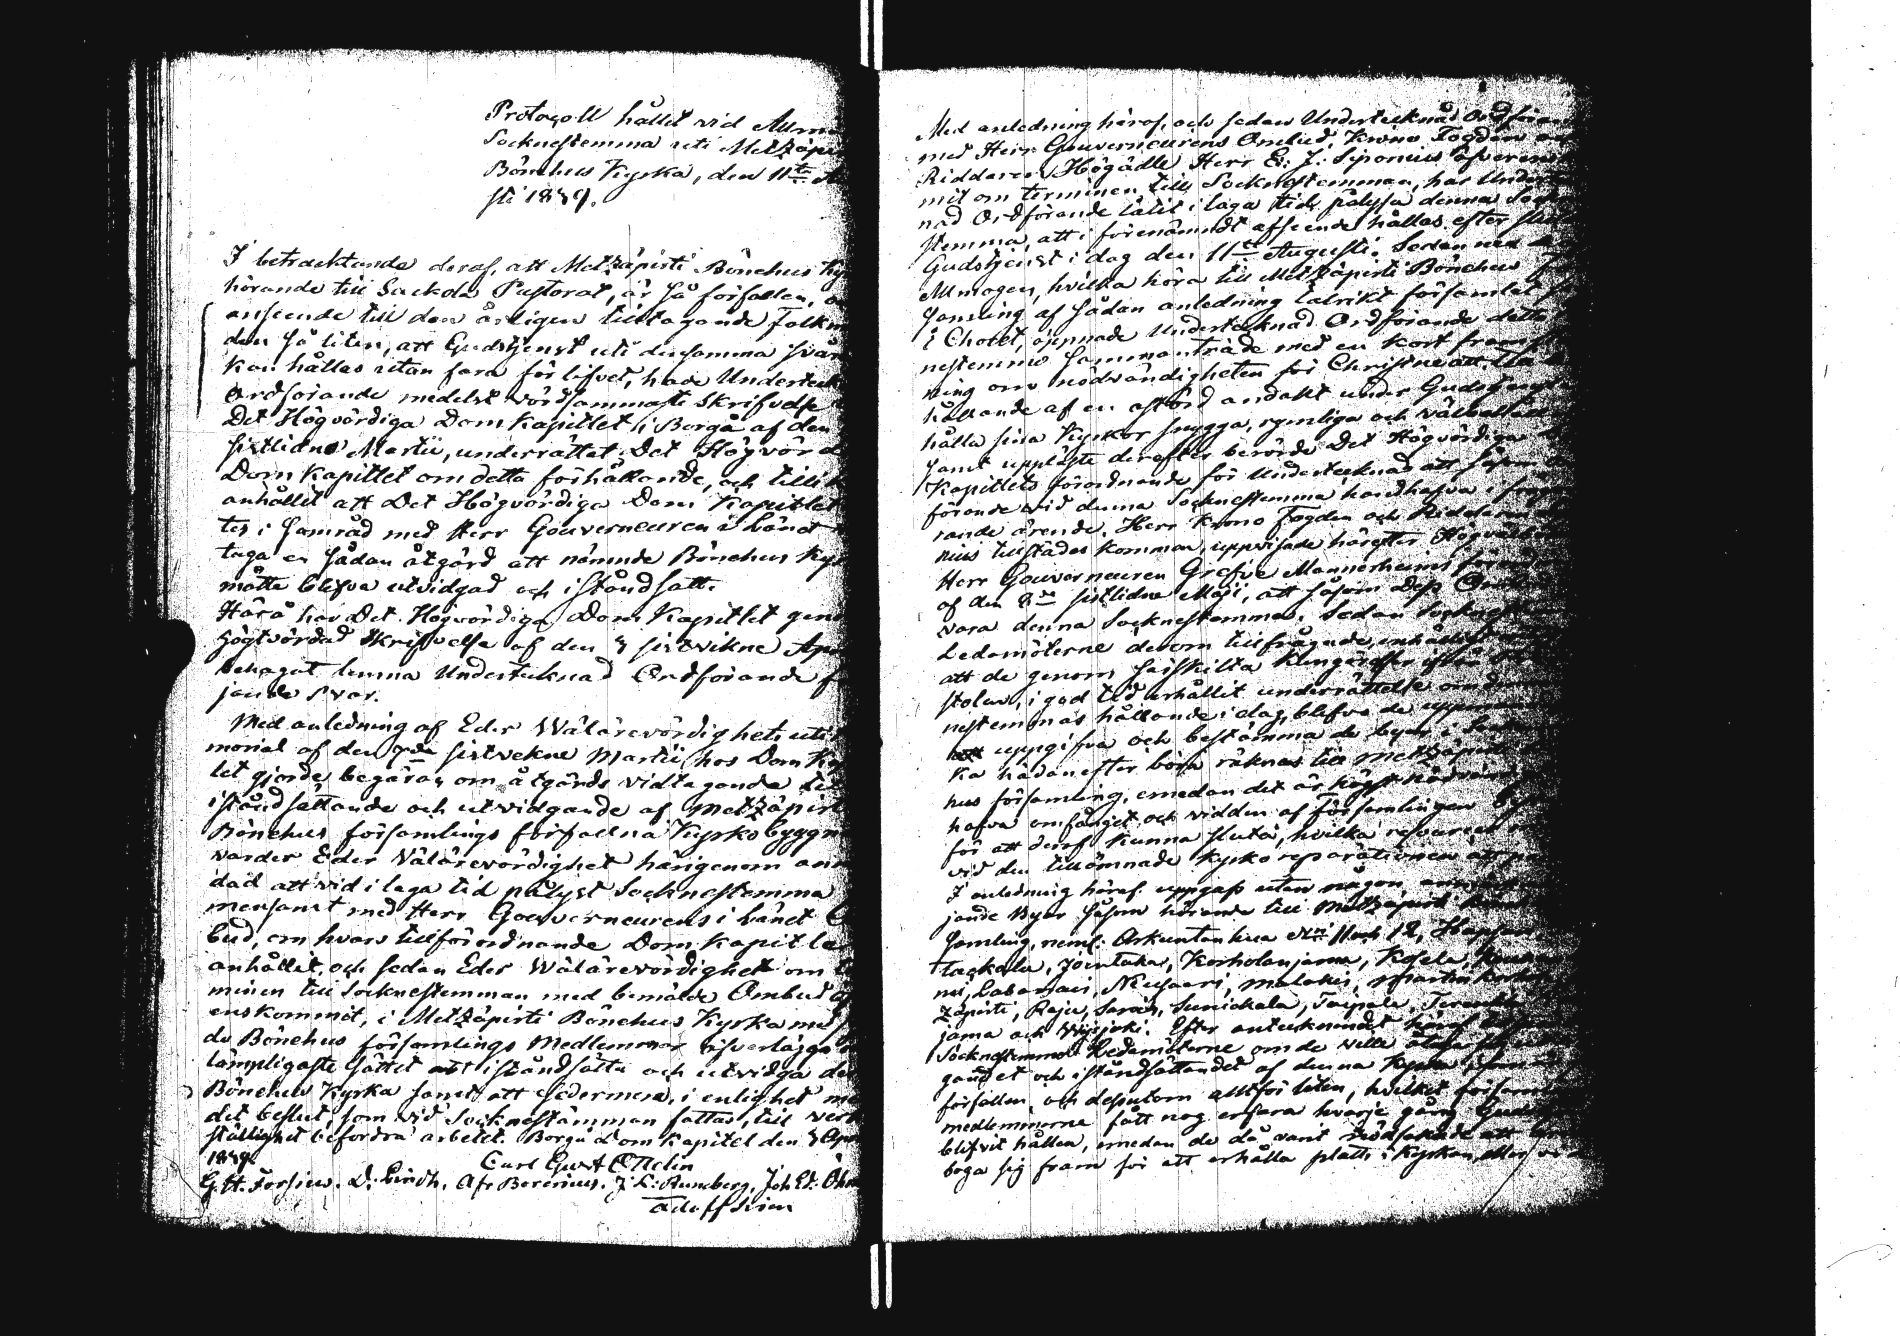 Protocoll hållit vid Allmän
Socknestemma uti Metzäpir
Bönehus Kyrka, den 11te Au
sti 1839.
I betracktande deraf, att Metzäpirti Bönehus Ky
hörande till Sackola Pastorat, är så förfallen, o
anseende till den årligen tilltagande Folkm
den så liten, att Gudstjenst uti densamma svår
kan hållas utan fara för lifvet, hade Underteck
Ordförande medelst vördsammaste skrifvelse
Det Högvördiga Domkapitlet i Borgå af den
sistlidne Martii, underrättat Det Högvörd
Domkapitlet om detta förhållande, och tillik
anhållit att Det Högvördiga Dom Kapitlet
tes i samråd med Herr Gouverneuren i Länet
taga en sådan åtgärd att nämnde Bönehus Ky
måtte blifva utvidgad och iståndsatt.
Härå har Det Högvördiga Dom Kapitlet geno
högtvördad Skrifvelse af den 3 sistvikne Apr
behagat lemna Undertecknad Ordförande f
jande svar.
Med anledning af Eder Wälärevördighets uti
morial af den 7de sistvekne Martii hos Dom Ka
let gjorde begäran om åtgärds vidtagande til
iståndsättande och utvidgande af Metzäpirt
Bönehus församlings förfallna Kyrkobyggn
varder Eder Wälärevördighet härigenom an
dad att vid i laga tid pålyst Socknestemma
mensamt med Herr Gouverneurens i länet O
bud, om hvars tillförordnande Domkapitle
anhållit, och sedan Eder Wälärevördighet om t
minen till Socknestemman med bemälde Ombud öf
enskommit, i Metzäpirti Bönehus Kyrka med
de Bönehus församlings Medlemmar öfverlägga
lämpligaste sättet att iståndsätta och utvidga den
Bönehus Kyrka samt att sedermera, i enlighet me
det beslut, som vid Socknestämman fattas, till verk
ställighet befordra arbetet. Borgå Domkapitel den 3 Apr
1839.
Carl Gust. Ottelin
G. H. Forsius. D. Lindh. Afr. Borenius. J. L: Runeberg. Joh. Ed. Öh
Adolf Sirén
Med anledning häraf, och sedan Undertecknad Ordföran
med Herr Gouverneurens Ombud, Krono Fogden o
Riddaren Högädle Herr E: J: Siponius öfverens
mit om terminen till Socknestemman, har Underte
nad Ordförande låtit i laga tid pålysa denna Sock
stemma, att i förenämndt afseende hållas efter slut
Gudstjenst i dag den 11te Augusti. Sedan
Allmogen, hvilka höra till Metzäpirti Bönehus
samling af sådan anledning talrikt församlat
i Choret, öppnade Undertecknad Ordförande detta
nestemmo sammanträde med en kort framst
ning om nödvändigheten för Christne att
hållande af en ostörd andakt under Gudstjensten
hålla sina Kyrkor snygga, rymliga och välbehållne
samt uppläste derefter berörde Det Högvördiga
Kapitlets förordnande för Undertecknad att såsom
förande vid denna Socknestemma handhafva
rande ärende. Herr Krono Fogden och Riddaren
nius tillstädes kommen, uppvisade härefter Högvälb
Herr Gouverneuren Grefve Mannerheims förord
af den 8de sistlidne Maji, att såsom dess Ombud
vara denna Socknestemma. Sedan Sockne
Ledamöterne derom tillfrågade, anhållit
att de genom särskilta Kungörelser ifrån
stolen, i god tid erhållit underrättelse om
nestemmas hållande i dag, blefvo de uppm
uppgifva och bestämma de byar i
ka hädanefter böra räknas till Metzäpirti
hus församling, emedan det är högst nödvändi
hafva omfånget och vidden af församlingen
för att deraf kunna sluta, hvilka
vid den tillämnade kyrkoreparationen
I anledning häraf uppgafs utan någon
jande Byar såsom hörande till Metzäpirti
samling, neml: Arkuntanhua No 11 och 12, Hapsan
taskala, Joentaka, Korholanjama, Kosela
mi, Labanjai, Neusaari, Malaksi, Martin
zäpirti, Raju, Saroi, Sunickala, Taipale, Teren
jama och Wiisjoki. Efter antecknandet häraf
Socknestemmo Ledamöterne om de ville åtaga
gandet och iståndsättandet af denna Kyrka,
förfallen, och dessutom alltför liten, hvilket församl
medlemmerne fått nog erfara hvarje gång Gudst
blifvit hållen, emedan de då varit nödsakade att
boga sig fram för att erhålla plats i Kyrkan, eller